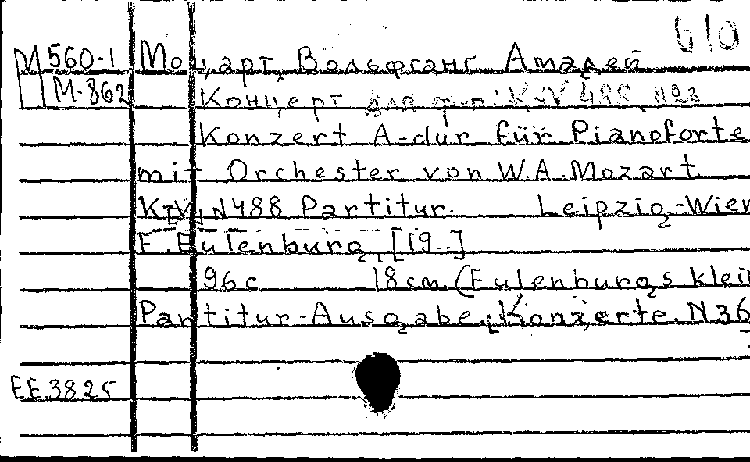 610
М560-1 Моцарт, Вольфганг Амадей
М-862 Концерт для ф-п. KV 488, №23
Konzert A-dur für Pianoforte
mit Orchester von W.A. Mozart.
K.V. N488 Partitur. Leipzig-Wien
E. Eulenburg, [19..]
96 с 18 cm (Eulenburgs klein
Partitur-Ausgabe. Konzerte. N36
EE 3825